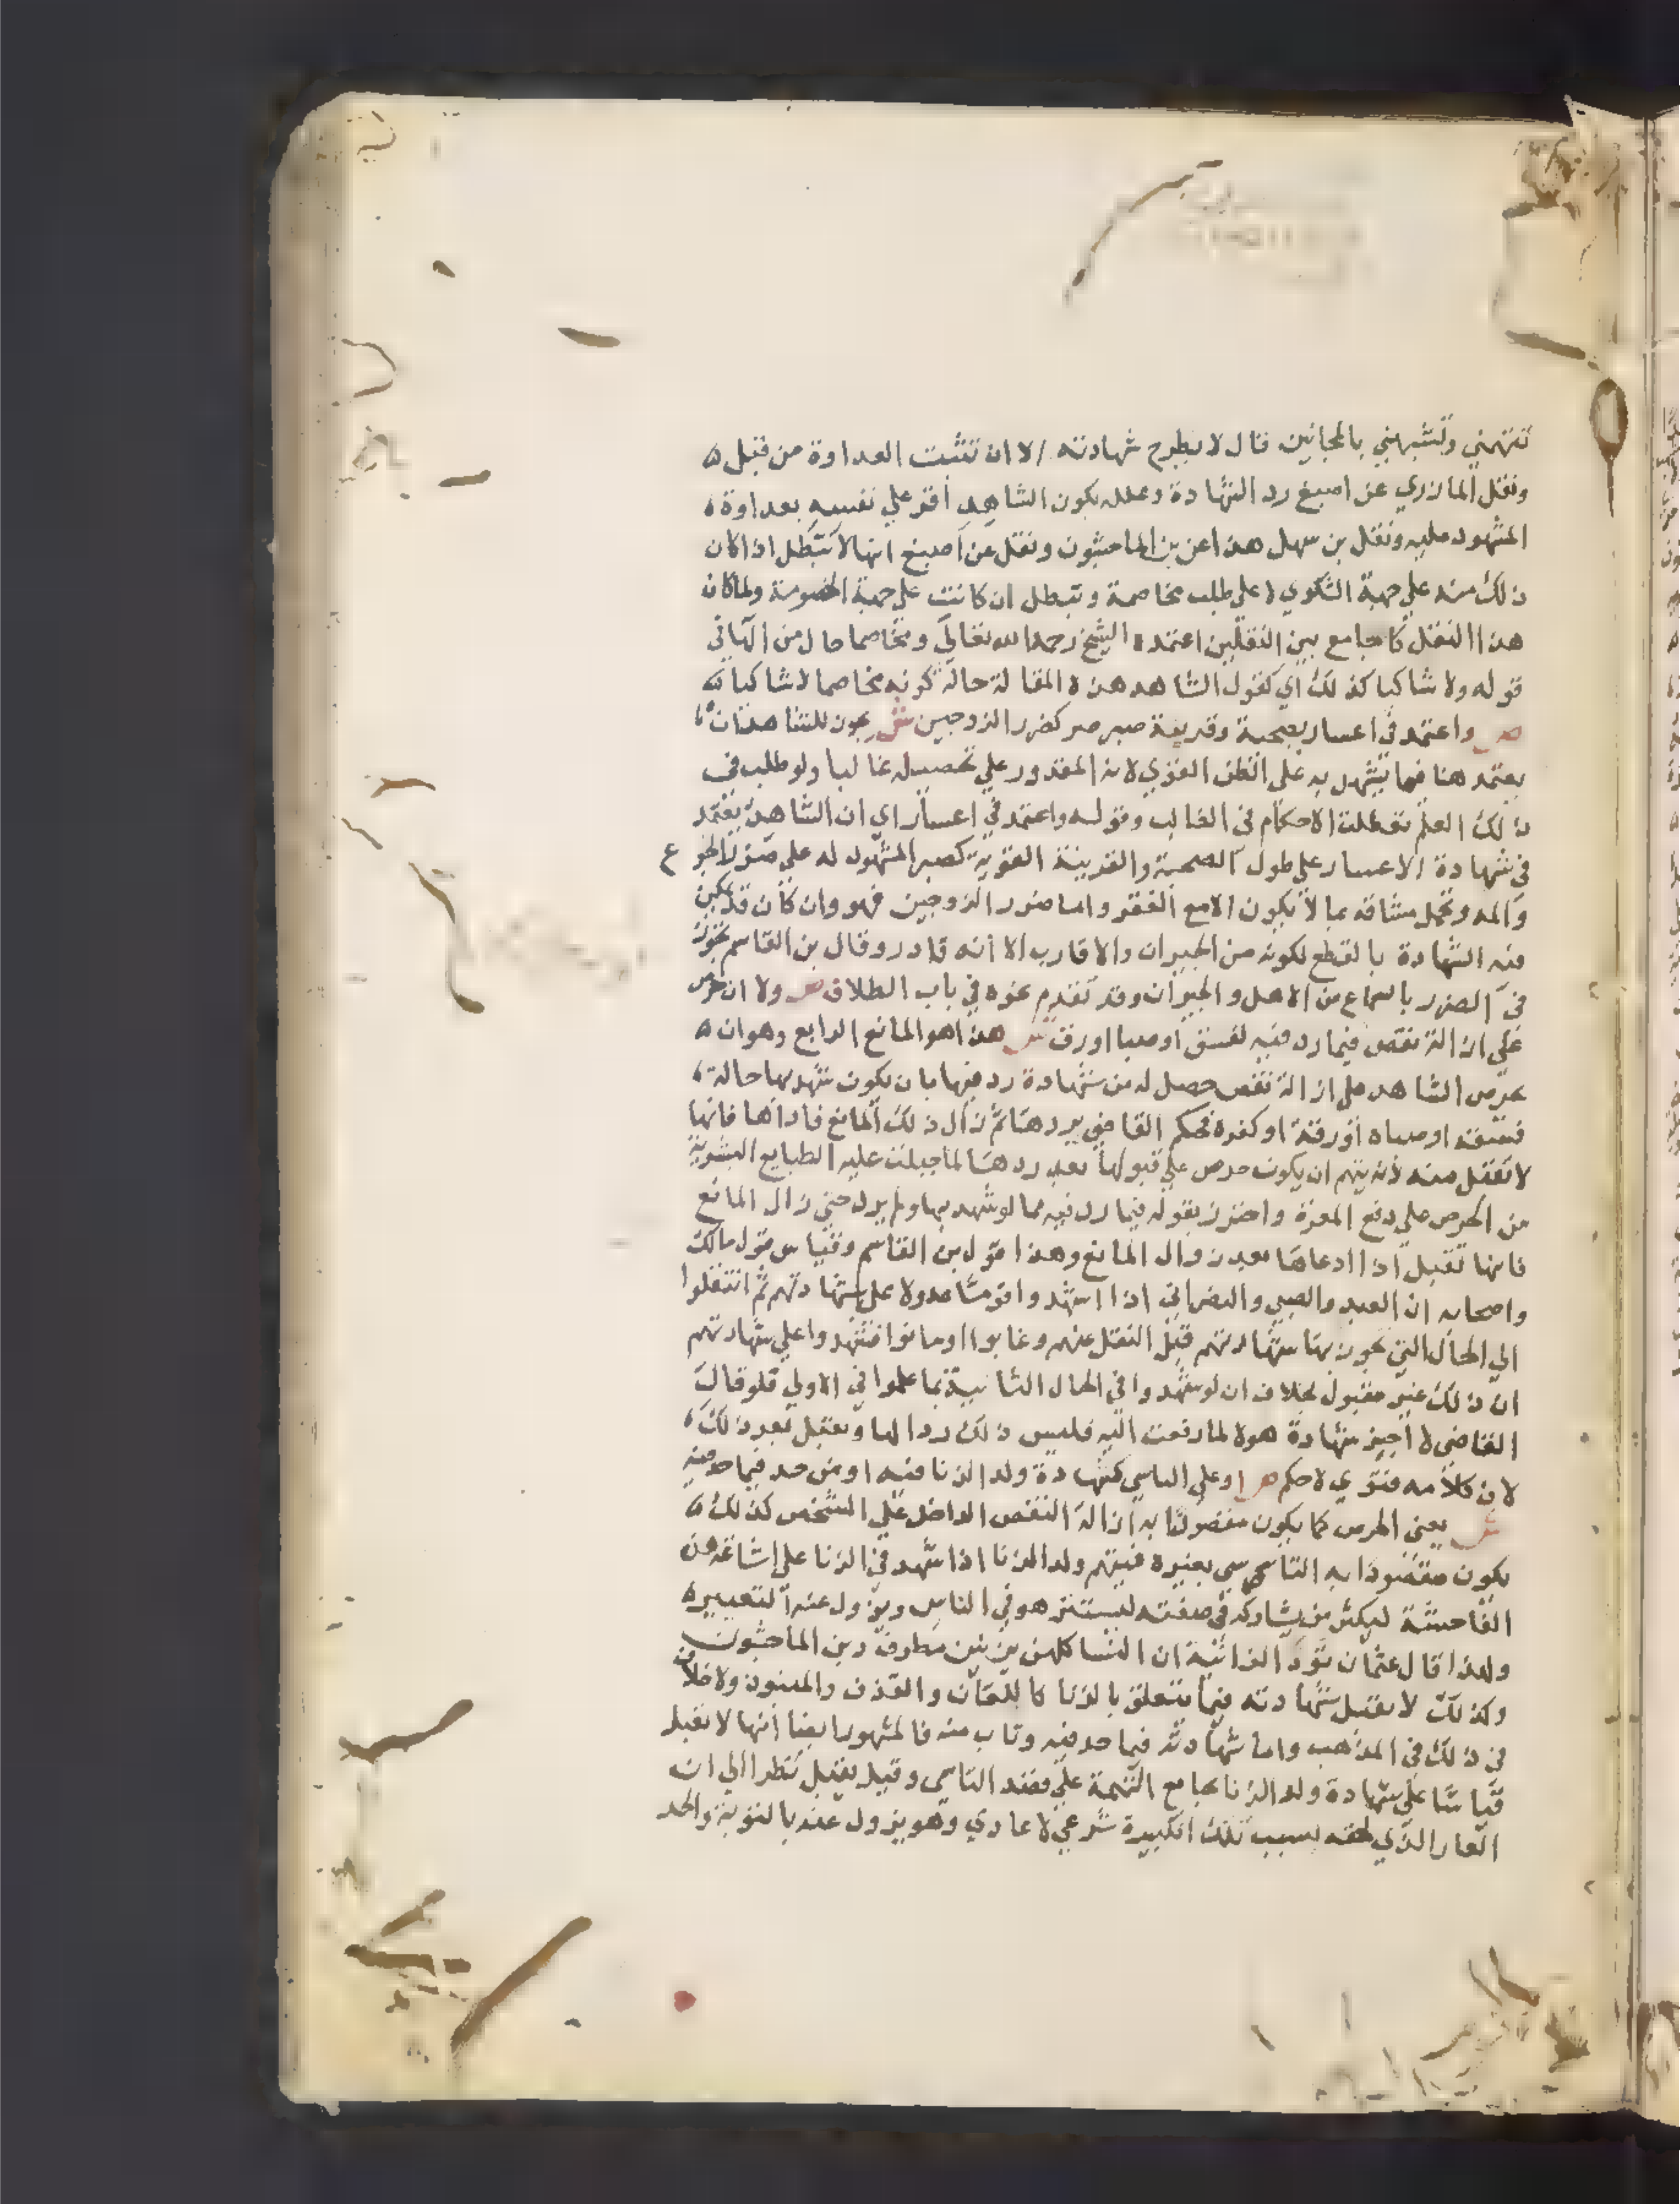 تتهمني وتشبهني بالمجانين قال لا يطرح شهادته الا ان تثبت العداوة من قبل
ونقل المازري عن اصبغ رد الشهادة وعلله بكون الشاهد أقر علي نفسه بعداوة
المشهود عليه ونقل بن سهل هذا عن بن الماجشون ونقل عن أصبغ انها لا تبطل اذا كان
ذلك منه علي جهة الشكوي لا علي طلب مخاصمة وتبطل ان كانت علي جهة الخصومة ولما كان
هذا النقل كالجامع بين النقلين اعتمده الشيخ رحمه الله تعالي ومخاصما حال من
قوله ولا شاكيا كذلك اي كقول الشاهد هذه المقالة حالة كونه مخاصما لا شاكيا
ص واعتمد في اعسار بصحبة وقرينة صبر ضر كضرر الزوجين ش يجوز للشاهد ان
يعتمد هنا فيما يشهد به علي الظن القوي لانه المقدور علي تحصيله غالبا ولو طلب في
ذلك العلم تعطلت الاحكام في الغالب وقوله واعتمد في اعسار اي ان الشاهد يعتمد
في شهادة الاعسار علي طول الصحبة والقرينة القوية كصبر المشهود له علي ضرر الجوع
وألمه وتحمل مشاقه بما لا يكون الا مع الفقر واما ضرر الزوجين فهو وان كان قد يمكن
فيه الشهادة بالقطع لكونه من الجيران والاقارب الا أنه قادر وقال بن القاسم تجوز
في الضرر بالسماع من الاهل والجيران وقد تقدم نحوه في باب الطلاق ص ولا ان حرص
علي ازالة نقص فيما رد فيه لفسق أو صبا او رق ش هذا هو المانع الرابع وهو ان
يحرص الشاهد علي ازالة نقص حصل له من شهادة رد فيها بان يكون شهد بها حالة
فسقه او صباه أو رقه او كفره فحكم القاضي بردها ثم زال ذلك المانع فاداها فانها
لا تقبل منه لأنه يتهم ان يكون حرص علي قبولها بعد ردها لما جبلت عليه الطبايع البشرية
من الحرص علي دفع المعرة واحترز بقوله فيما رد فيه مما لو شهد بها ولم يرد حتي زال المانع
فانها تقبل اذا ادعاها بعد زوال المانع وهذا قول بن القاسم وقياس قول مالك
واصحابه ان العبد والصبي والنصراني اذا اشهدوا قوما عدولا علي شهادتهم ثم انتقلوا
الي الحال التي تجوز بها شهادتهم قبل النقل عنهم وغابوا او ماتوا فشهدوا علي شهادتهم
ان ذلك غير مقبول بخلاف ان لو شهدوا في الحال الثانية بما علموا في الاولي فلو قال
القاضي لا أجيز شهادة هولا لما رفعت اليه فليس ذلك ردا لها وتقبل بعد ذلك
لان كلامه فتوي لا حكم ص او علي التاسي كشهادة ولد الزنا فيه او من حد فيما حد فيه
ش يعني الحرص كما يكون مقصودا به ازالة النقص الداخل علي الشخص كذلك
يكون مقصودا به التاسي بغيره فيتهم ولد الزنا اذا شهد في الزنا علي إشاغة هذه
الفاحشة ليكثر من يشاركه في صفته ليستتر هو في الناس ويزول عنه التعيير
ولهذا قال عثمان تود الزانية ان النسا كلهن يزنين مطرف وبن الماجشون
وكذلك لا يقبل شهادته فيما يتعلق بالزنا كاللعان والقذف والمنبوذ ولا خلاف
في ذلك في المذهب واما شهادته فيما حد فيه وتاب منه فالمشهور ايضا أنها لا تقبل
قياسا علي شهادة ولد الزنا بجامع التهمة علي قصد التاسي وقيل يقبل نظرا الي ان
العار الذي لحقه بسبب تلك الكبيرة شرعي لا عادي وهو يزول عنه بالتوبة والحد